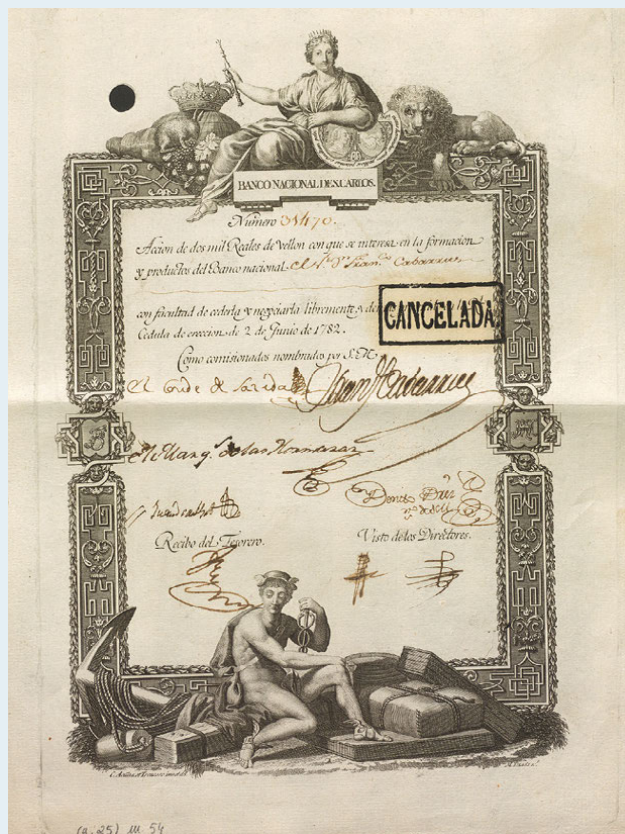 BANCO NACIONAL DE S. CARLOS.
Número 31470.
Accion de dos mil Reales de vellon con que se interesa en la formacion
y productos del Banco nacional el Sr. Dn. Franco. Cabarrus
con facultad de cederla y negociarla libremente y
CANCELADA
Cedula de ereccion de 2 de Junio de 1782.
Como comisionados nombrados por S. M.
El Conde de
El Marqs. de las Hormazas
Recibo del Tesorero.
Visto de los Directores.
(a. 25) 54